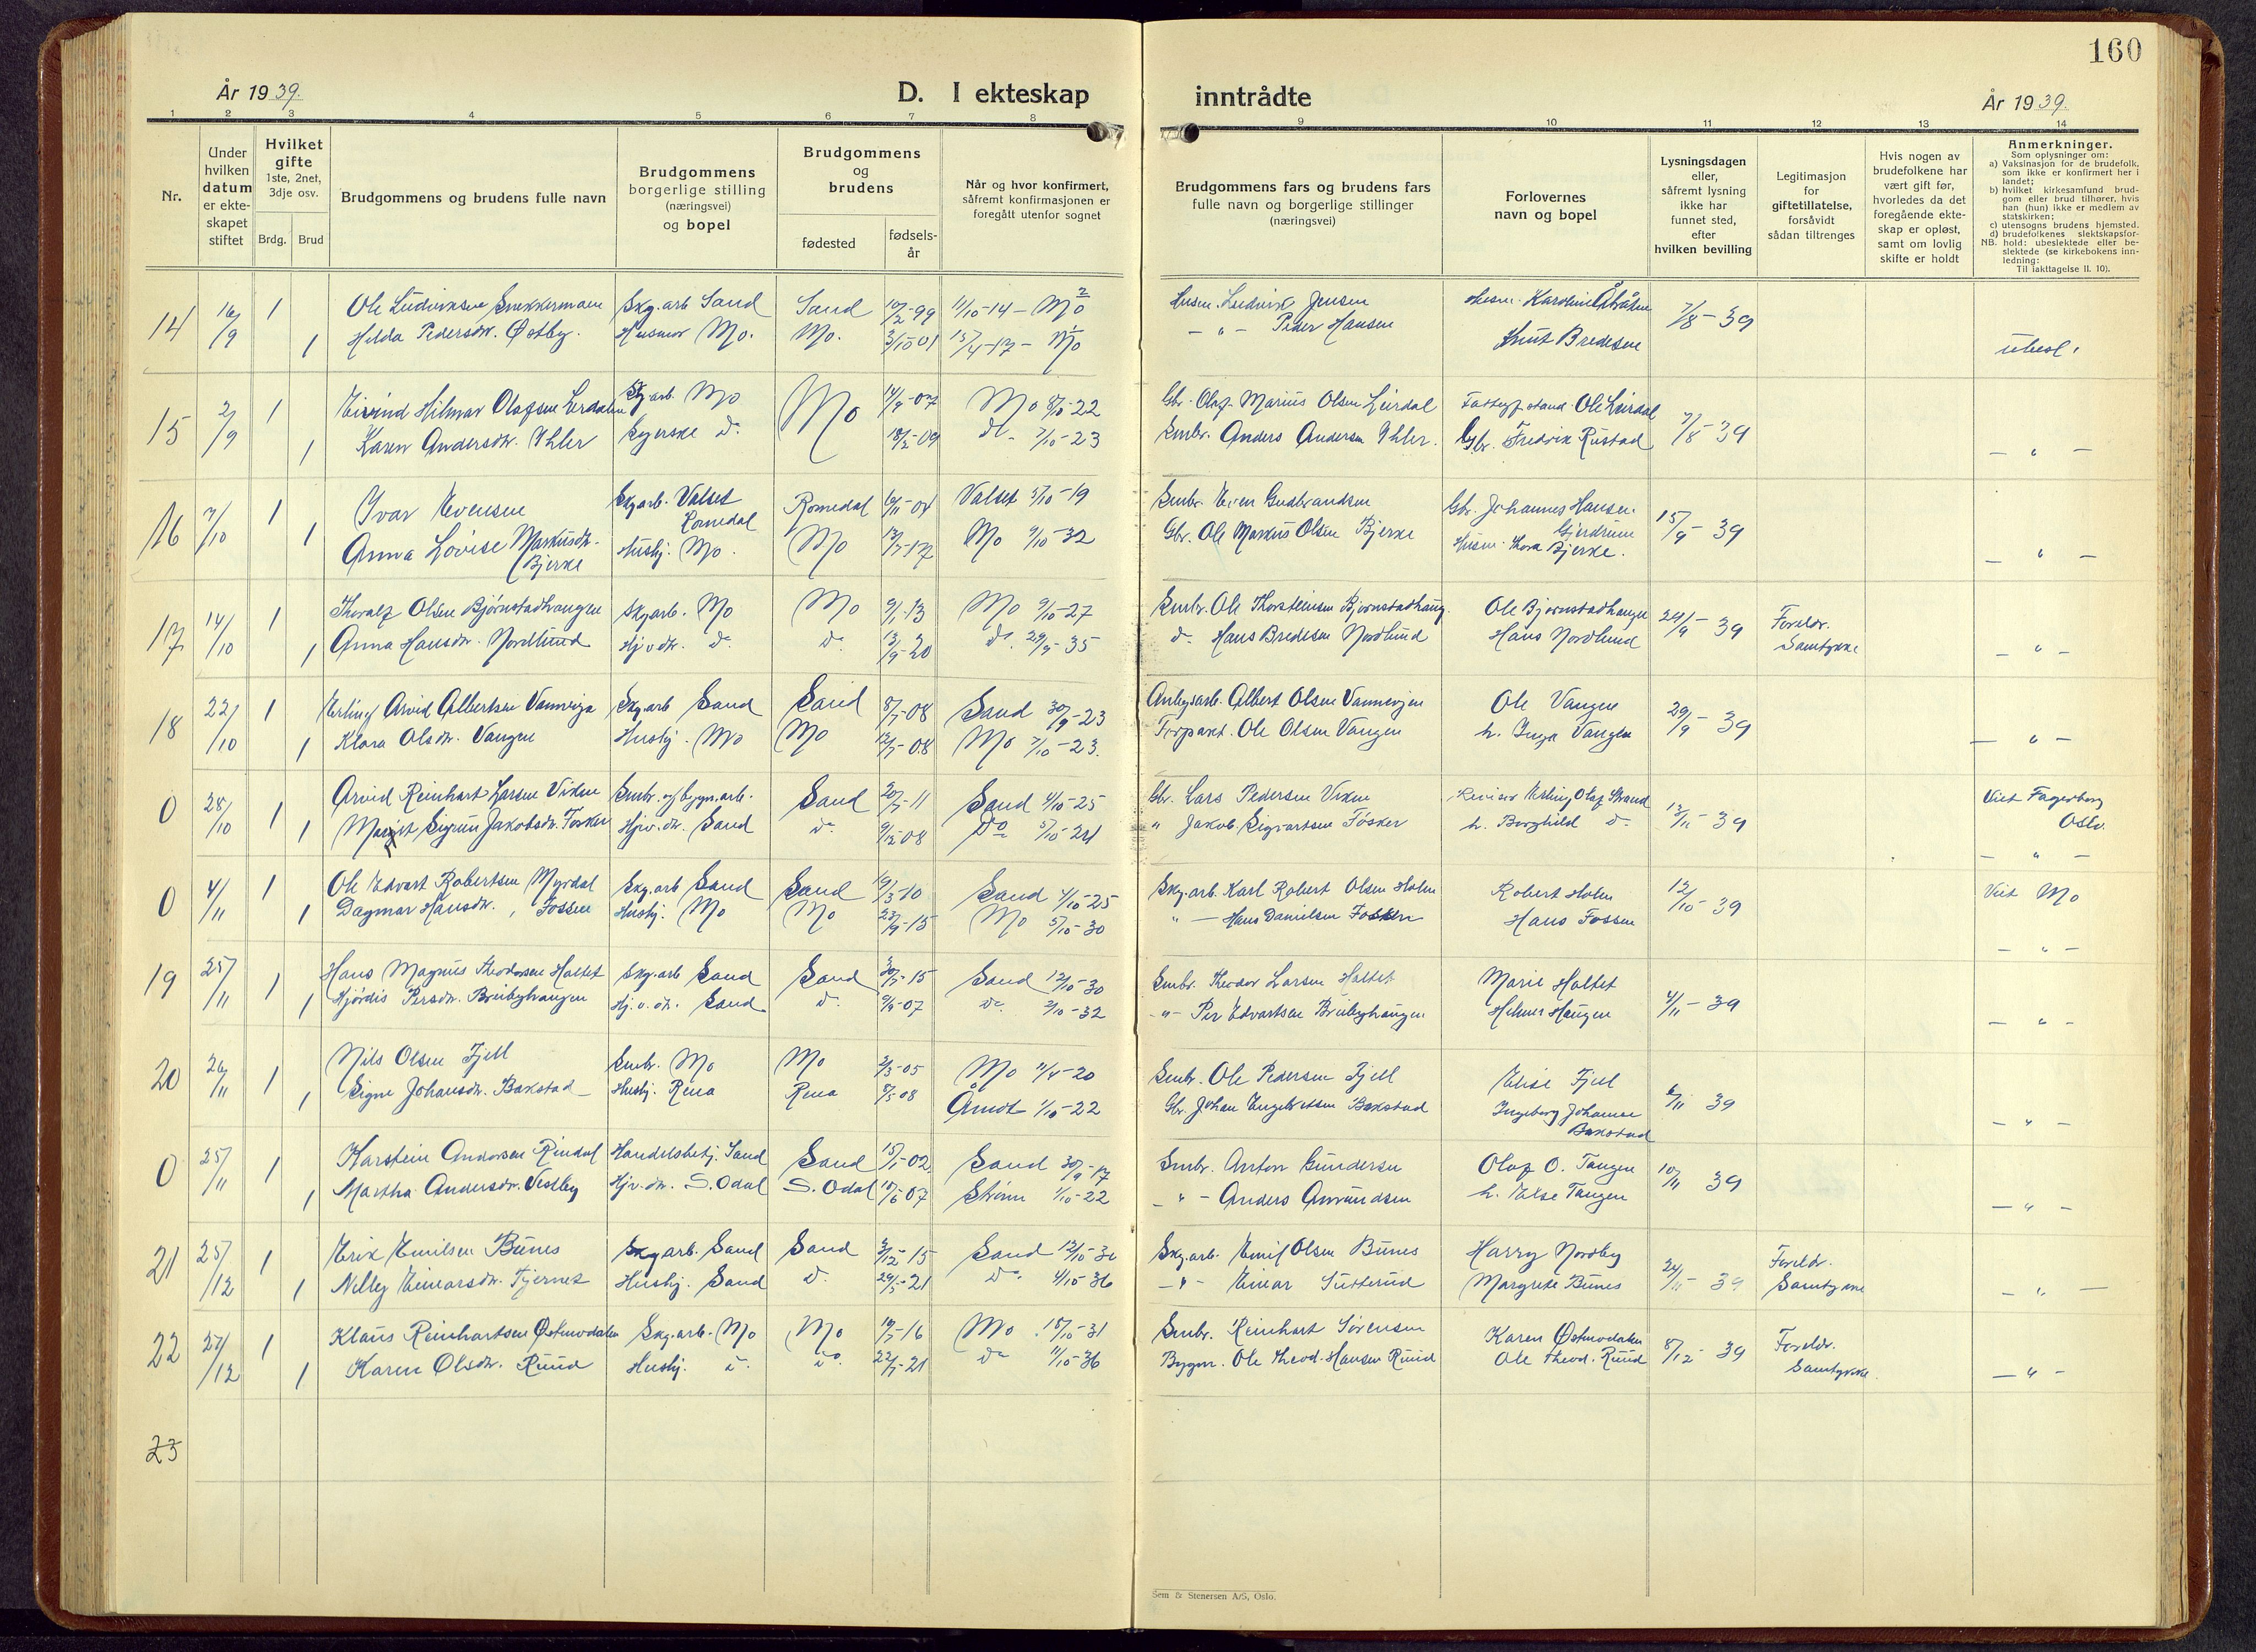 160
År 1939.
D. I ekteskap
inntrådte
År 1939.
1 2 3 4 5 6 7 8 9 10 11 12 13 14
Nr.
Under hvilken datum er ekte-skapet stiftet
Hvilket gifte 1ste, 2net, 3dje osv.
Brdg. Brud
Brudgommens og brudens fulle navn
Brudgommens borgerlige stilling (næringsvei) og bopel
Brudgommens og brudens
fødested
fødsels-år
Når og hvor konfirmert, såfremt konfirmasjonen er foregått utenfor sognet
Brudgommens fars og brudens fars fulle navn og borgerlige stillinger (næringsvei)
Forlovernes navn og bopel
Lysningsdagen eller, såfremt lysning ikke har funnet sted, efter hvilken bevilling
Legitimasjon for giftetillatelse, forsåvidt sådan tiltrenges
Hvis nogen av brudefolkene har vært gift før, hvorledes da det foregående ekte-skap er opløst, samt om lovlig skifte er holdt
Anmerkninger.
Som oplysninger om:
a) Vaksinasjon for de brudefolk, som ikke er konfirmert her i landet;
b) hvilket kirkesamfund brud-gom eller brud tilhører, hvis han (hun) ikke er medlem av statskirken;
c) utensogns brudens hjemsted.
d) brudefolkenes slektskapsfor-hold: ubeslektede eller be-slektede (se kirkebokens inn-ledning:
NB.
Til iakttagelse II. 10).
14 16/9 1 Ole Ludviksen Snekkermoen Skg.arb. Sand Sand 10/2-99 11/10-14 - Mo Husm. Ludvik Jensen Husm. Karoline 7/8-39
1 Hilda Pedersdtr. Østby. Husmor Mo. Mo. 3/10-01 15/4-17 - Mo - " - Peder Hansen Knut Bredesen ubesl.
15 2/9 1 Eivind Hilmar Olafsen Lerdalen Skg.arb. Mo Mo 14/9-07 Mo 8/10-22 Gbr. Olaf Marius Olsen Leirdal Fattigf.stand. Ole Leirdal 7/8-39
1 Karen Andersdtr. Ihler Syerske do. 18/2-09 do. 7/10-23 Smbr. Anders Andersen Ihler. Gbr. Fredrik Rustad - " -
16 7/10 1 Ivar Evensen Skg.arb. Valset Romedal Romedal 6/11-04 Valset 5/10-19 Smbr. Even Gudbrandsen Gbr. Johannes Hansen Gjerdrum 15/9-39
1 Anna Lovise Markusdtr. Bjerke Hushj. Mo. Mo 13/7-17 Mo 9/10-32 Gbr. Ole Markus Olsen Bjerke Husm. Thora Bjerke. - " -
17 14/10 1 Thoralf Olsen Bjørnstadhaugen Skg.arb. Mo Mo 9/1-13 Mo 9/10-27 Smbr. Ole Thorsteinsen Bjørnstadhaug. Ole Bjørnstadhaugen 24/9-39 Foreldr.
1 Anna Hansdtr. Nordlund Hj.v.dtr. do. do. 13/9-20 do. 29/9-35 do. Hans Bredesen Nordlund Hans Nordlund Samtykke - " -
18 22/10 1 Erling Arvid Albertsen Vannvgja Skg.arb Sand Sand 8/7-08 Sand 30/9-23 Anlegsarb. Albert Olsen Vannevgjen Ole Vangen 29/9-39
1 Klara Olsdtr. Vangen Hushj. Mo Mo 12/7-08 Mo 7/10-23. Forpakt. Ole Olsen Vangen h. Inga Vangen - " -
0 28/10 1 Arvid Reinhart Larsen Viken Smbr. og bygn.arb. Sand 20/7-11 Sand 4/10-25 Gbr. Lars Pedersen Viken Revisor Erling Olaf Strand 13/10-39 Viet Fagerborg Oslo.
1 Margit Sigrun Jakobsdtr. Fosker Hjv.dtr. Sand do. 9/12-08 Do 5/10-24 " Jakob Sigvartsen Fosker h. Borghild do. - " -
0 4/11 1 Ole Edvart Robertsen Myrdal Skg.arb Sand Sand 19/3-10 Sand 4/10-25 Skg.arb. Karl Robert Olsen Holm Robert Holm 12/10-39 Viet Mo
1 Dagmar Hansdtr. Fossen Hushj. Mo Mo 23/9-15 Mo 5/10-30 " - Hans Danielsen Fossen Hans Fossen - " -
19 25/11 1 Hans Magnus Theodorsen Haltet Skg.arb Sand Sand 30/7-15 Sand 12/10-30 Smbr. Theodor Larsen Haltet Marie Haltet 4/11-39
1 Hjördis Persdtr. Breibyhaugen Hj.v.dtr. Sand do. 9/9-07 do. 2/10-32 - " - Per Edvartsen Breibyhaugen Helmer Haugen - " -
20 26/11 1 Nils Olsen Fjell Smbr. Mo Mo 3/3-05 Mo 11/4-20 Smbr. Ole Pedersen Fjell Elise Fjell 6/11 39
1 Signe Johansdtr. Bakstad Hushj. Rena Rena 8/5-08 Åmot 1/10-22 Gbr. Johan Engebretsen Bakstad Ingeborg Johanne Bakstad - " -
0 25/11 1 Karstein Andersen Rindal Handelsbetj. Sand Sand 15/1-02 Sand 30/9-17 Smbr. Anton Gundersen Olaf O. Tangen 10/11 39
1 Martha Andersdtr. Vestby Hjv.dtr. S. Odal S. Odal 10/6-07 Strøm 1/10-22 - " - Anders Amundsen h. Else Tangen - " -
21 25/12 1 Erik Emilsen Bunes Skg.arb. Sand Sand 3/12-15 Sand 12/10-30 Skg.arb. Emil Olsen Bunes Harry Nordby 24/11-39 Foreldr.
1 Nelly Einarsdtr. Tjernes Hushj. Sand do. 29/5-21 do. 4/10-36 - " - Einar Sutterud Margrete Bunes Samtykke - " -
22 27/12 1 Klaus Reinhartsen Østmodalen Skg.arb. Mo Mo 19/7-16 Mo 18/10-31 Smbr. Reinhart Sørensen Karen Østmodalen 8/12-39 Foreldr.
1 Karen Olsdtr. Ruud Hushj. do. do. 22/7-21 do 11/10-36 Bygm. Ole Theod. Hansen Ruud Ole Theod. Ruud Samtykke. - " -
23
Sem & Stenersen A/S, Oslo.